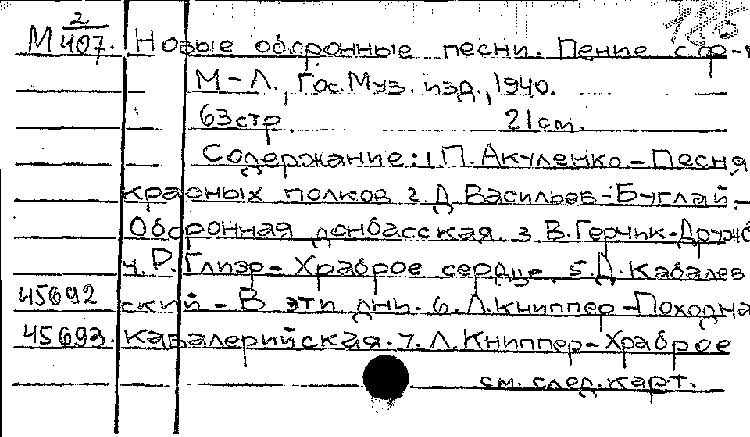 186
М 2/407. Новые оборонные песни. Пение с ф-
М-Л., Гос. Муз. изд., 1940.
63 стр. 21 см.
Содержание: 1. П. Акуленко - Песня
красных полков 2. Д. Васильев-Буглай -
Оборонная донбасская. 3. В. Герчик - Дружб
4. Р. Глиэр - Храброе сердце. 5. Д. Кабалев
45692 ский - В эти дни. 6. Л. Книппер - Походна
45693. кавалерийская. 7. Л. Книппер - Храброе
см. след. карт.